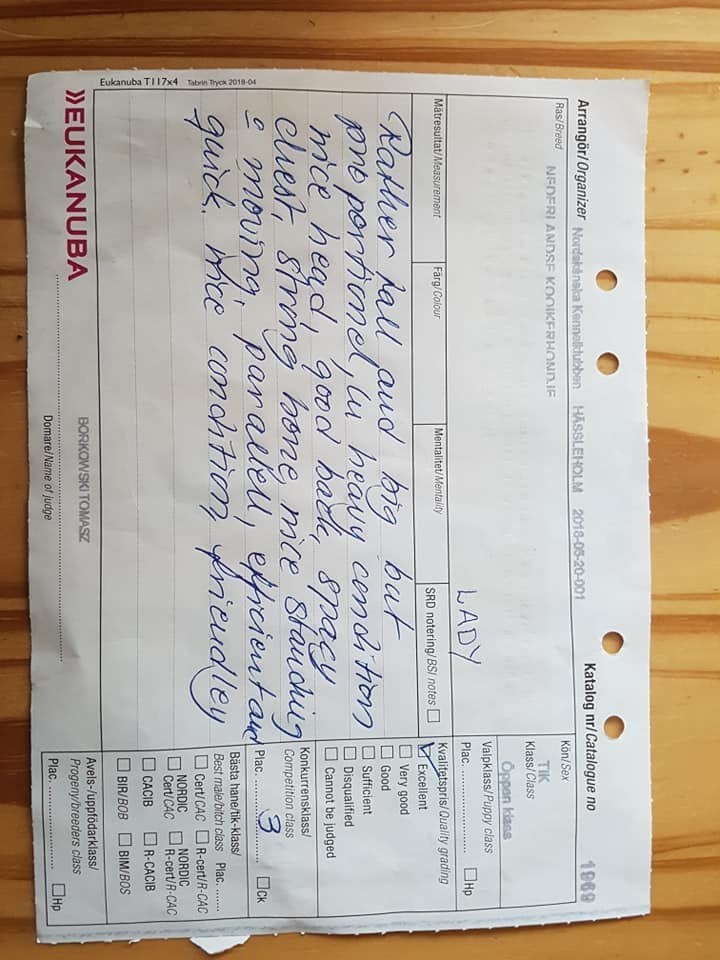 Arrangör/Organizer Nordskånska Kennelklubben HÄSSLEHOLM 2018-05-20-001
Katalog nr/Catalogue no 1969
Ras/Breed NEDERLANDSE KOOIKERHONDJE
LADY
Kön/Sex
TIK
Klass/Class
Öppen klass
Valpklass/Puppy class
Plac. ☐Hp
Mätresultat/Measurement Färg/Colour Mentalitet/Mentality SRD notering/BSI notes ☐
Rather tall and big but
proportioned, in heavy condition
nice head, good back, spacy
chest, strong bone, nice standing
= moving, parallell, efficient and
quick. Nice condition, friendley
Kvalitetspris/Quality grading
☑ Excellent
☐ Very good
☐ Good
☐ Sufficient
☐ Disqualified
☐ Cannot be judged
Konkurrensklass/
Competition class
Plac. 3 ☐Ck
Bästa hane/tik-klass/
Best male/bitch class Plac.
☐ Cert/CAC ☐ R-cert/R-CAC
☐ NORDIC Cert/CAC ☐ NORDIC R-cert/R-CAC
☐ CACIB ☐ R-CACIB
☐ BIR/BOB ☐ BIM/BOS
Avels-/uppfödarklass/
Progeny/breeders class
Plac. ☐Hp
Eukanuba T117x4 Tabrin Tryck 2018-04
EUKANUBA
BORKOWSKI TOMASZ
Domare/Name of judge